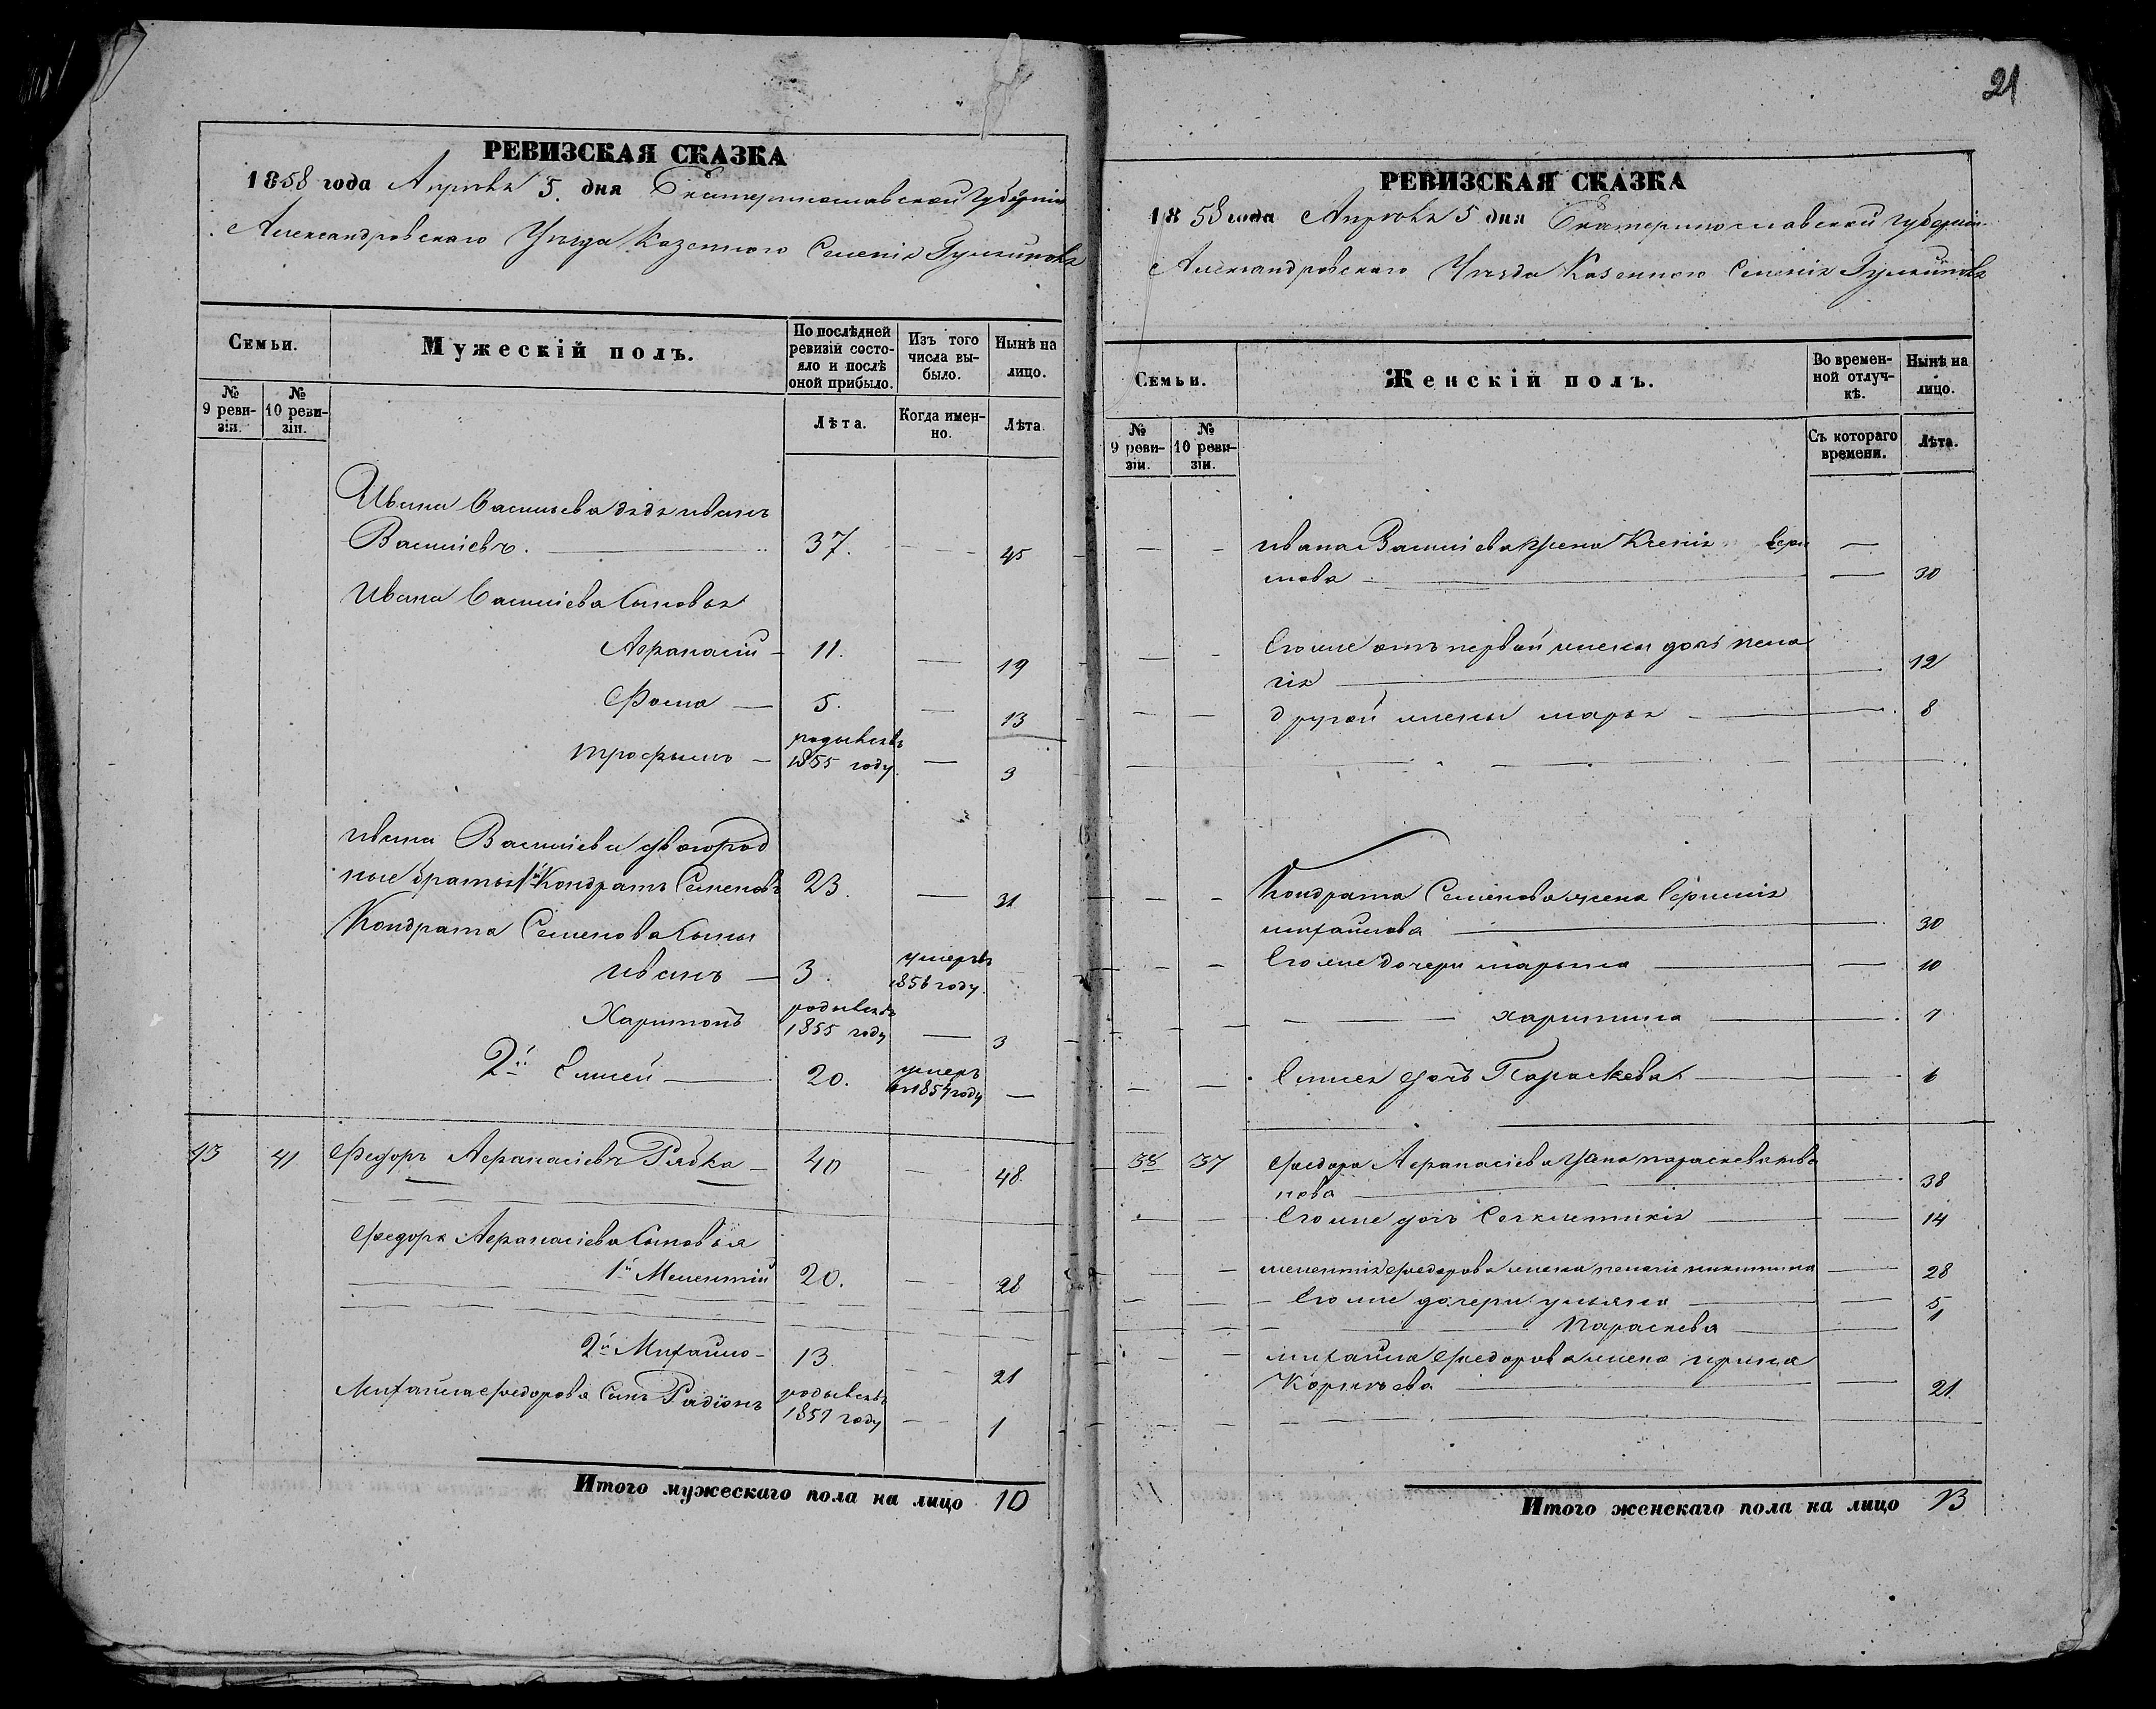 РЕВИЗСКАЯ СКАЗКА
1858 года Апреля 5. дня Екатеринославской Губернии
Александровскаго Уезда Казенного Селения Гуляйполя
Семьи.
Мужескій полъ.
По послѣдней ревизіи состояло и послѣ оной прибыло.
Изъ того числа выбыло.
Нынѣ на лицо.
№ 9 ревизіи.
№ 10 ревизіи.
Лѣта.
Когда именно.
Лѣта.
Ивана Васильева дядя иванъ
Василіевъ. 37. 45
Ивана Василіева Сыновья
Афанасій 11. 19
Фома 5. 13
трофымъ родывся въ 1855 году. 3
ивана Василіева двоюрод
ные братья 1й Кондратъ Семеновъ 23. 31
Кондрата Семенова Сыны
иванъ 3. умеръ въ 1856 году.
Харитонъ родывся въ 1855 году 3
2й Елисей 20. умеръ в 1857 году
43 41 Федоръ Афанасіевъ Рябка 40 48.
Федора Афанасіева Сыновья
1й Мелентій 20. 28
2й Михайло 13. 21
Михайла Федорова Сынъ Радіонъ родывся въ 1857 году 1
Итого мужескаго пола на лицо 10
21
РЕВИЗСКАЯ СКАЗКА
1858 года Апреля 5 дня Екатеринославской Губернии
Александровскаго Уезда Казенного Селения Гуляйполя
Семьи.
Женскій полъ.
Во временной отлучкѣ.
Нынѣ на лицо.
№ 9 ревизіи.
№ 10 ревизіи.
Съ котораго времени.
Лѣта.
ивана Василіева жена Ксенія
30
Его же отъ первой жены дочь пела
гія 12
другой жены марья 8
Кондрата Семенова жена Ефимія
михайлова 30
Его же дочери марына 10
харитина 7
Елисея дочь Параскева 6
38 37 федора Афанасіева жена параскева ива
нова 38
Его же дочь 14
мелентія федорова жена пелагія никитина 28
Его же дочери ульяна 5
Параскева 1
михайла федорова жена ирина
21.
Итого женскаго пола на лицо 13